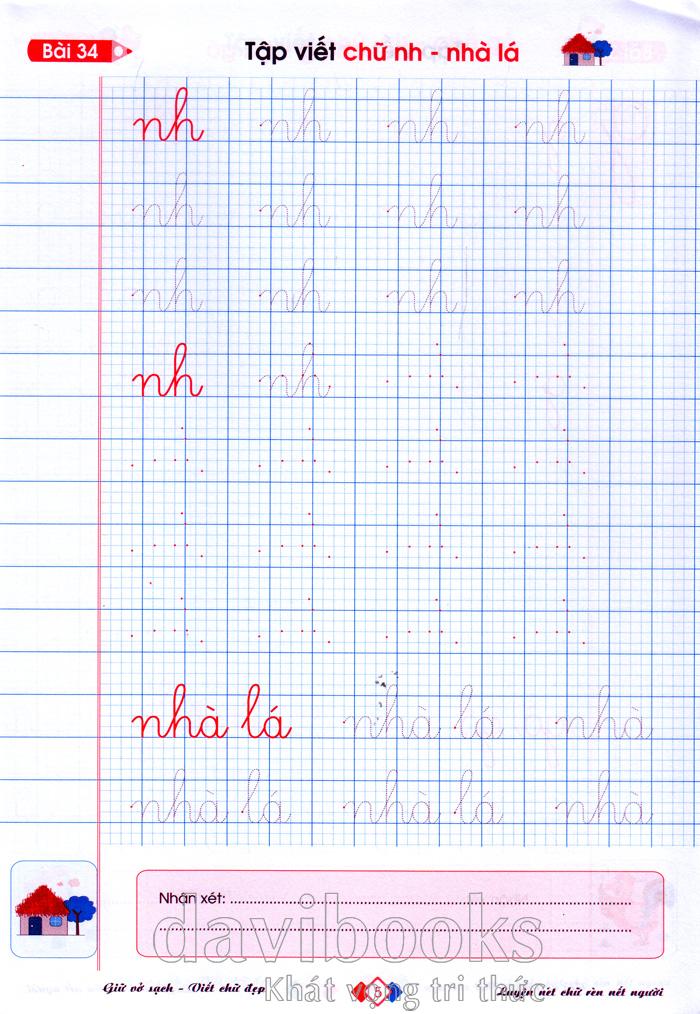 Bài 34 Tập viết chữ nh - nhà lá
nh nh nh nh
nh nh nh nh
nh nh nh nh
nh nh
nhà lá nhà lá nhà
nhà lá nhà lá nhà
Nhận xét:
davibooks
Khát vọng tri thức
Giữ vở sạch - Viết chữ đẹp 5 Luyện nét chữ rèn nết người